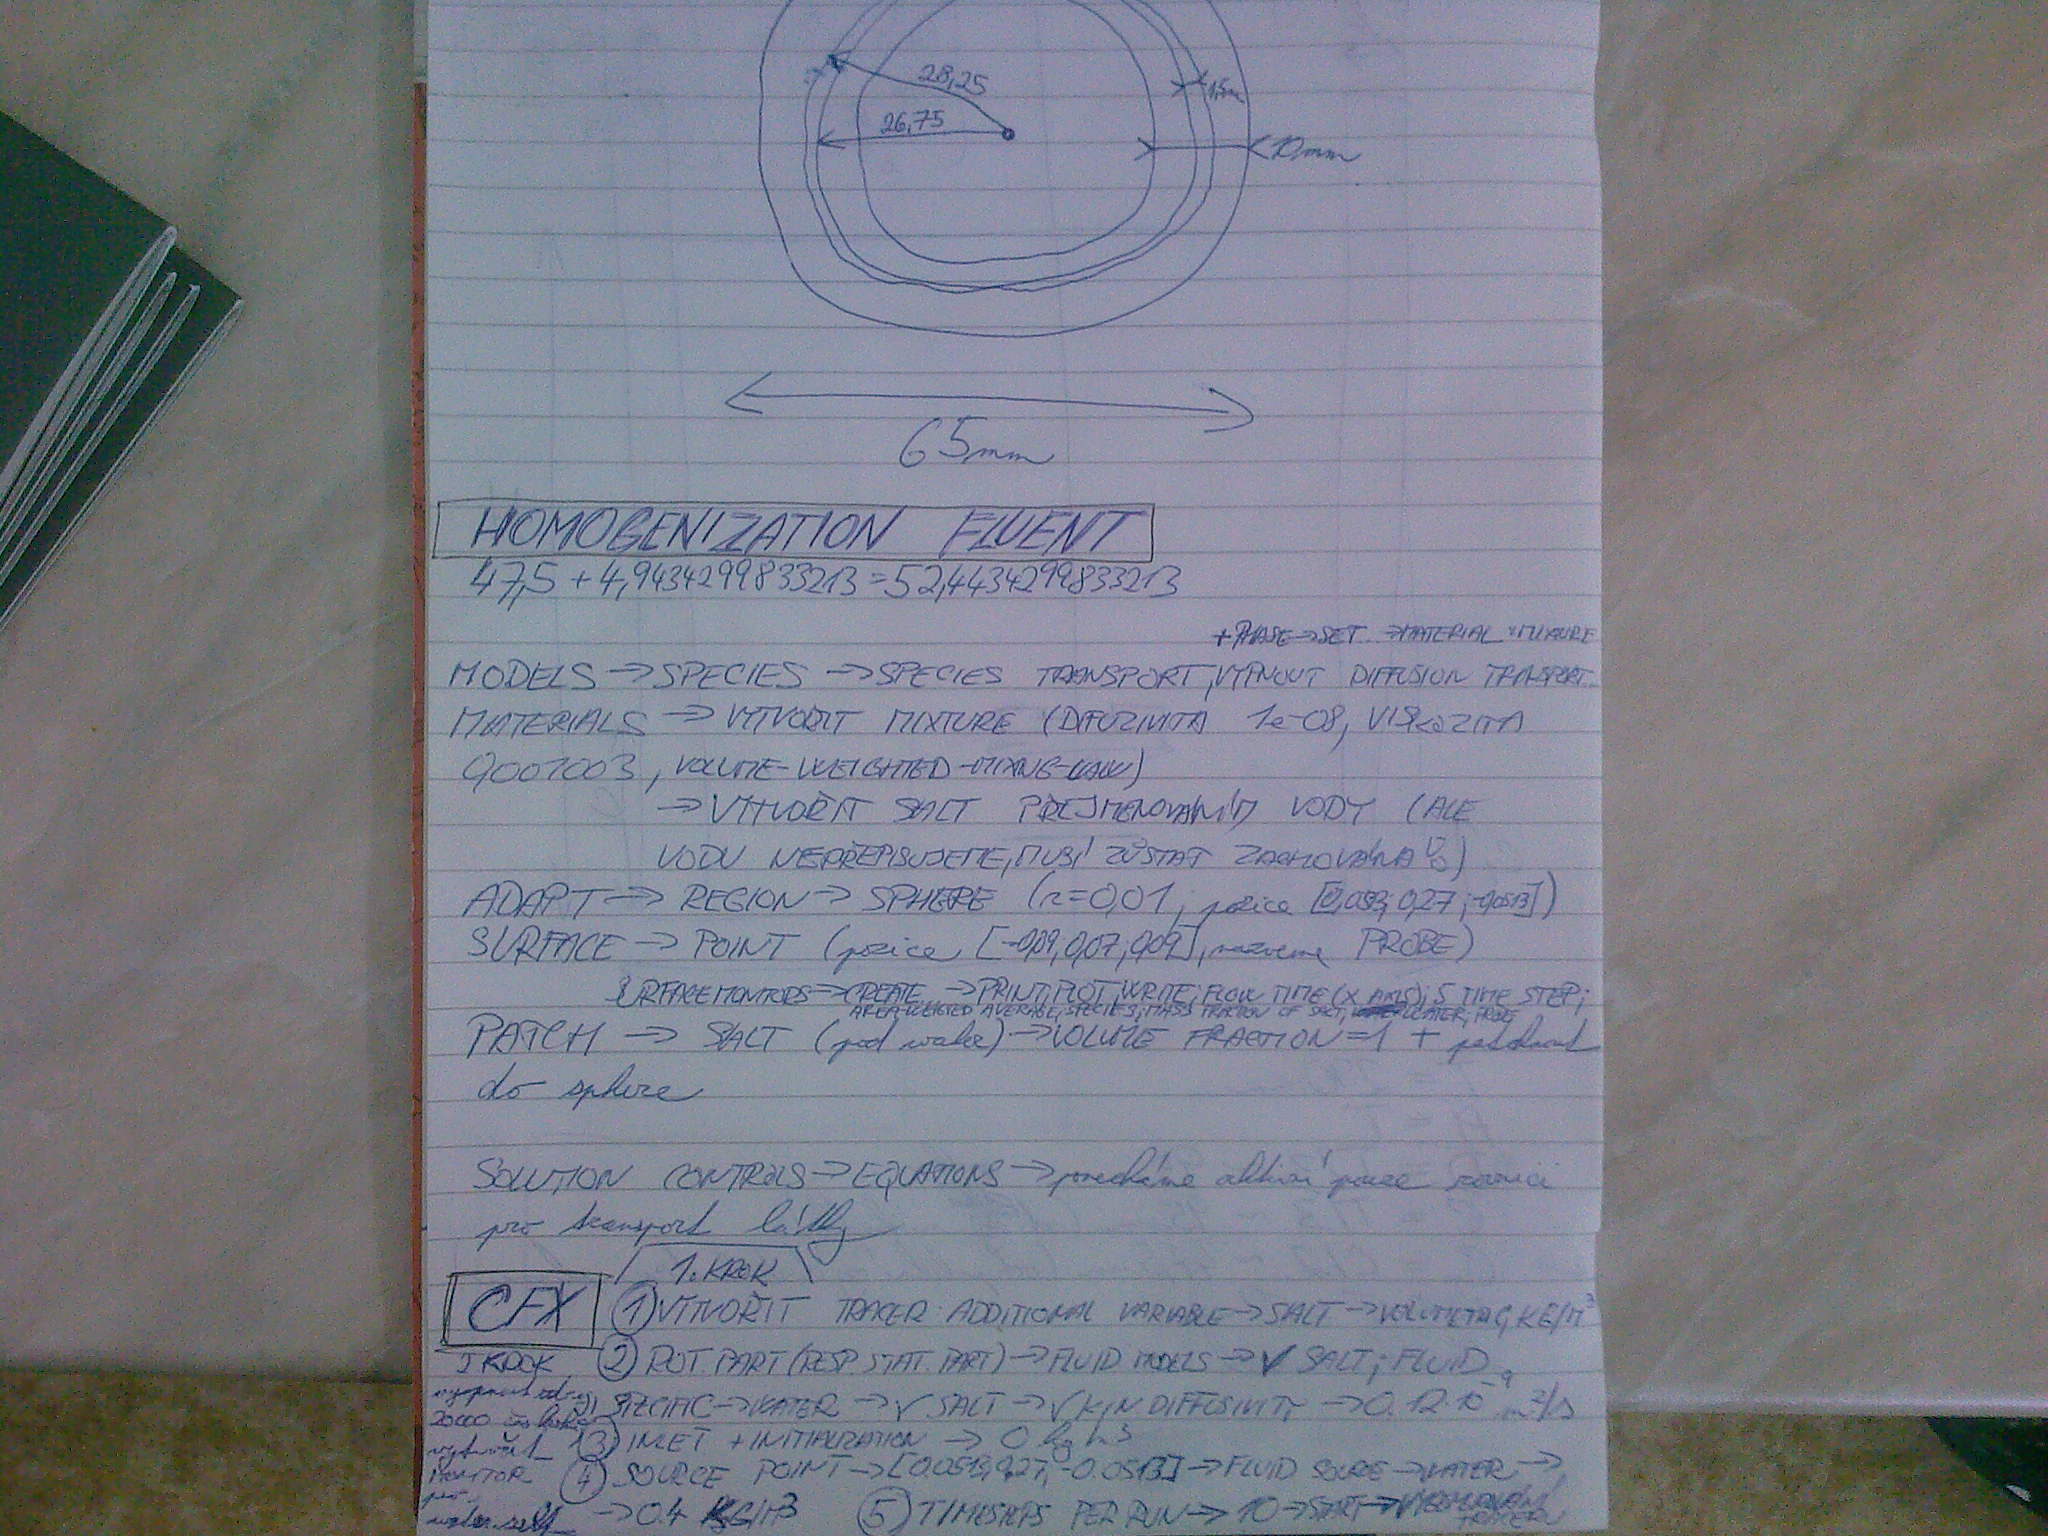 28,25
1,5m
26,75
10mm
65mm
HOMOGENIZATION FLUENT
47,5 + 4,9434299833213 = 52,4434299833213
+ PHASE → SET → MATERIAL MIXTURE
MODELS → SPECIES → SPECIES TRANSPORT, VYPNOUT DIFFUSION TRANSPORT
MATERIALS → VYTVOŘIT MIXTURE (DIFUZIVITA 1e-08, VISKOZITA
0,001003, VOLUME-WEIGHTED-MIXING-LAW)
→ VYTVOŘIT SALT PŘEJMENOVÁNÍM VODY (ALE
VODU NEPŘEPISUJEME, MUSÍ ZŮSTAT ZACHOVÁNA)
ADAPT → REGION → SPHERE (r=0,01; pozice [0,27; -0,0513])
SURFACE → POINT (pozice [-0,09; 0,07; 0,09], nazveme PROBE)
SURFACE MONITORS → CREATE → PRINT, PLOT, WRITE; FLOW TIME (X AXIS); 5 TIME STEP;
AREA-WEIGHTED AVERAGE, SPECIES, MASS FRACTION OF SALT, WATER, PROBE
PATCH → SALT (pod water) → VOLUME FRACTION = 1 +
do sphere
SOLUTION CONTROLS → EQUATIONS → ponecháme aktivní pouze rovnici
pro transport látky
1. KROK
CFX ① VYTVOŘIT TRACER: ADDITIONAL VARIABLE → SALT → KG/M³
KROK ② ROT. PART (RESP. STAT. PART) → FLUID MODELS → ✓ SALT; FLUID
SPECIFIC → WATER → ✓ SALT → ✓ KIN. DIFFUSIVITY → 0.12·10⁻⁹ m²/s
20000
③ INLET + INITIALIZATION → 0
MONITOR ④ SOURCE POINT → [0.0513, 0.27, -0.0513] → FLUID SOURCE → WATER →
pro
→ 0.4 KG/M³ ⑤ TIMESTEPS PER RUN → 10 → START →